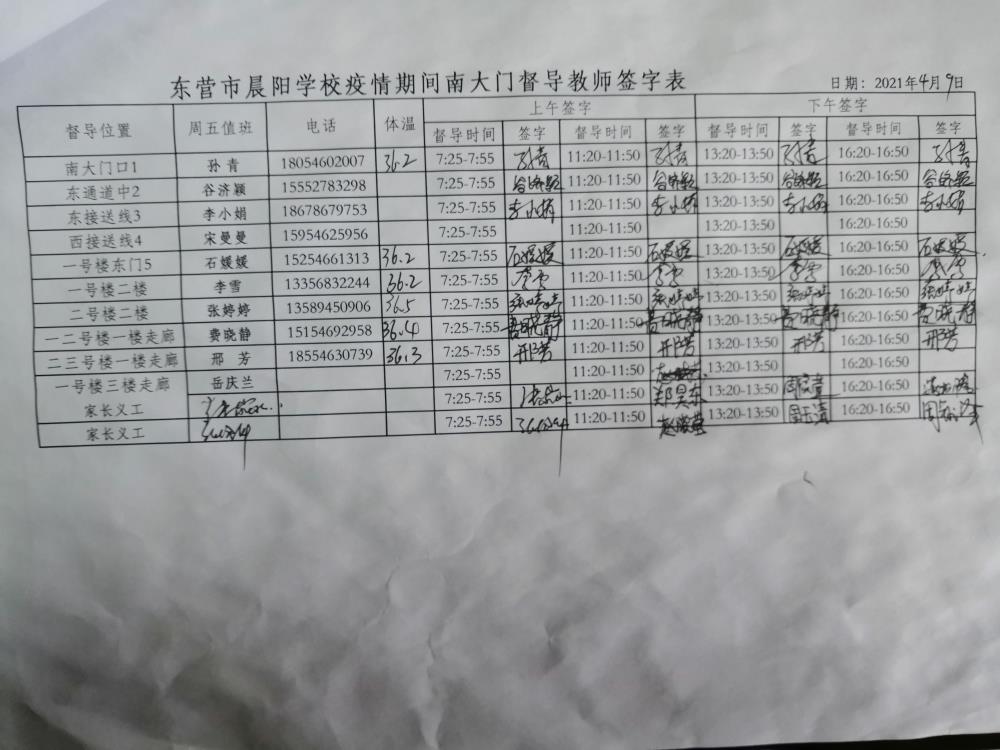 东营市晨阳学校疫情期间南大门督导教师签字表
日期：2021年4月9日
督导位置 周五值班 电话 体温 上午签字 下午签字
督导时间 签字 督导时间 签字 督导时间 签字 督导时间 签字
南大门口1 孙青 18054602007 36.2 7:25-7:55 孙青 11:20-11:50 孙青 13:20-13:50 孙青 16:20-16:50 孙青
东通道中2 谷济颖 15552783298 7:25-7:55 谷济颖 11:20-11:50 谷济颖 13:20-13:50 谷济颖 16:20-16:50 谷济颖
东接送线3 李小娟 18678679753 7:25-7:55 李小娟 11:20-11:50 李小娟 13:20-13:50 李小娟 16:20-16:50 李小娟
西接送线4 宋曼曼 15954625956 7:25-7:55 11:20-11:50 13:20-13:50 16:20-16:50
一号楼东门5 石媛媛 15254661313 36.2 7:25-7:55 石媛媛 11:20-11:50 石媛媛 13:20-13:50 石媛媛 16:20-16:50 石媛媛
一号楼二楼 李雪 13356832244 36.2 7:25-7:55 李雪 11:20-11:50 李雪 13:20-13:50 李雪 16:20-16:50 李雪
二号楼二楼 张婷婷 13589450906 36.5 7:25-7:55 张婷婷 11:20-11:50 张婷婷 13:20-13:50 张婷婷 16:20-16:50 张婷婷
一二号楼一楼走廊 费晓静 15154692958 36.4 7:25-7:55 费晓静 11:20-11:50 费晓静 13:20-13:50 费晓静 16:20-16:50 费晓静
二三号楼一楼走廊 邢芳 18554630739 36.3 7:25-7:55 邢芳 11:20-11:50 邢芳 13:20-13:50 邢芳 16:20-16:50 邢芳
一号楼三楼走廊 岳庆兰 7:25-7:55 11:20-11:50 13:20-13:50 16:20-16:50
家长义工 7:25-7:55 11:20-11:50 郑昊东 13:20-13:50 16:20-16:50
家长义工 7:25-7:55 11:20-11:50 13:20-13:50 16:20-16:50